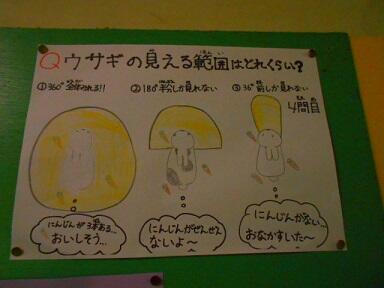 Qウサギの見える範囲はどれくらい?
はんい
①360° 全体みれる!!
②180° 半分しか見れない
③36° 前しか見れない
4問目
にんじんが3本ある…
おいしそう…
にんじんがぜんぜん
ないよ〜
にんじんがない…
おなかすいた〜